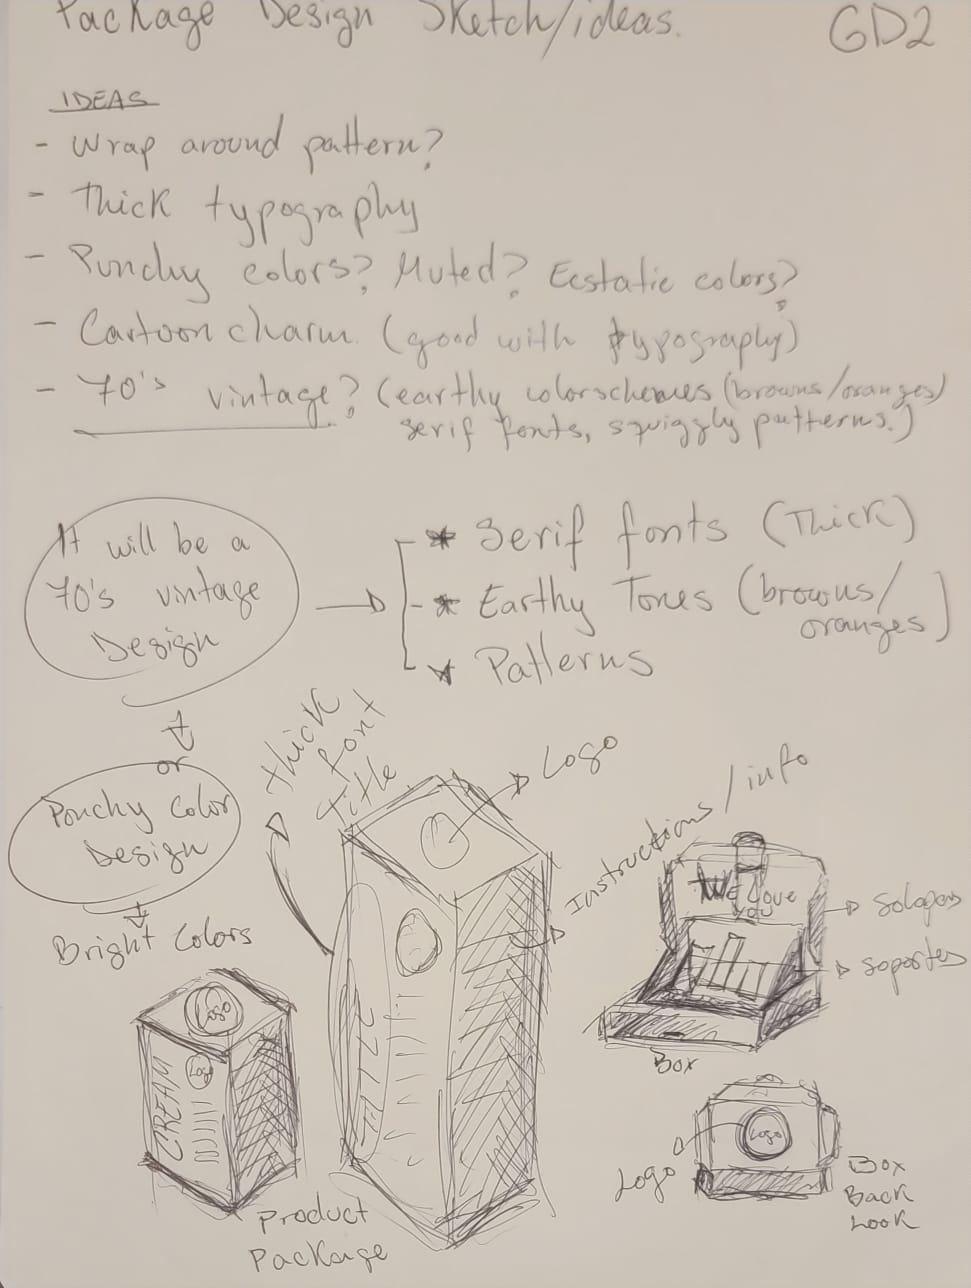 Package Design Sketch/ideas. GD2
IDEAS
- Wrap around pattern?
- Thick typography
- Punchy colors? Muted? Ecstatic colors?
- Cartoon charm. (good with typography)
- 70's vintage? (earthy colorschemes (browns/oranges)
serif fonts, squiggly patterns.)
It will be a
70's vintage
Design
* Serif fonts (Thick)
* Earthy Tones (browns/
oranges)
* Patterns
or
Punchy Color
Design
Bright Colors
Thick
font
Title
Logo
Instructions/info
We love
you
Solapas
soportes
Box
Logo
CREAM
Logo
TITLE
Product
Package
Logo
Logo
Box
Back
Look